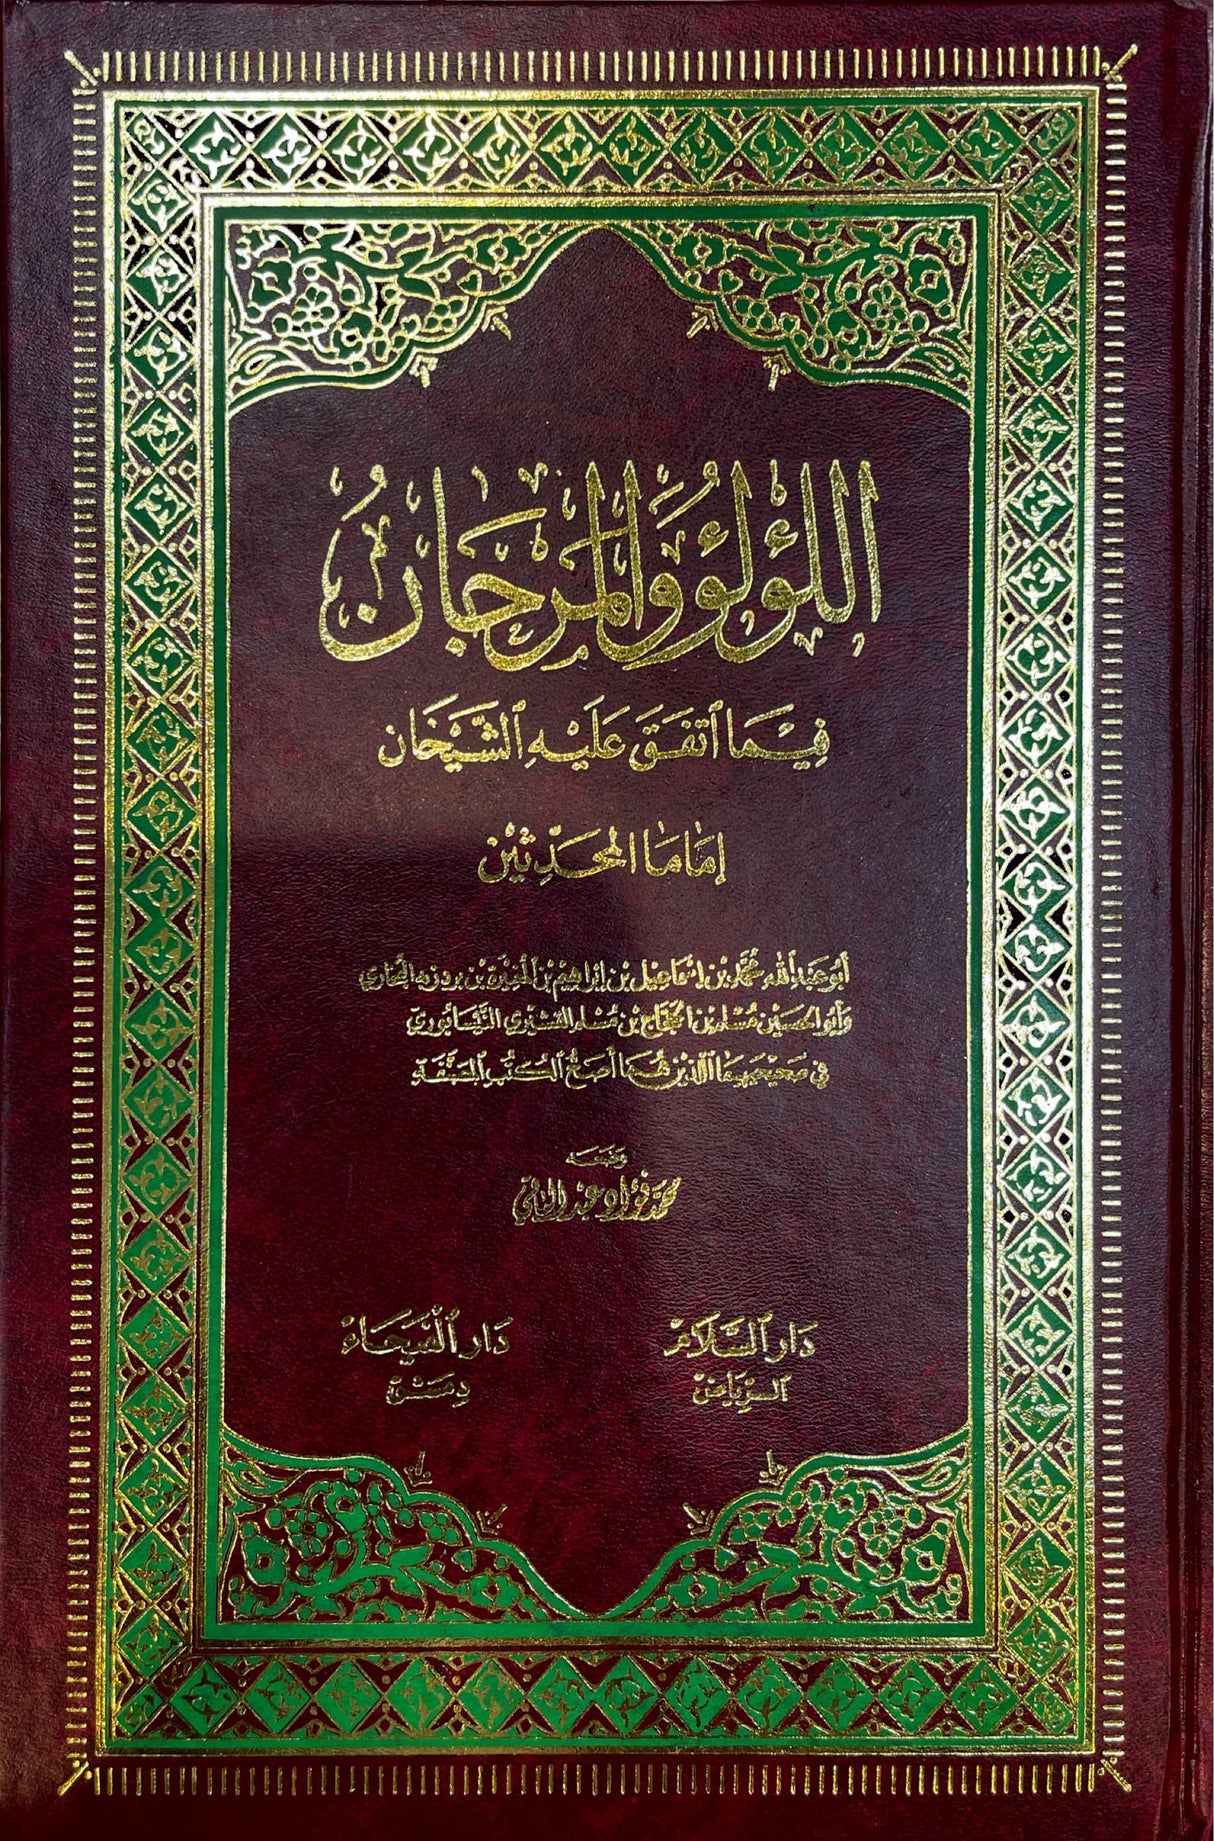 اللُّؤْلُؤُ وَالْمَرْجَانُ
فِيْمَا ٱتَّفَقَ عَلَيْهِ ٱلشَّيْخَانِ
إِمَامَا الْمُحَدِّثِيْنَ
أَبُو عَبْدِ ٱللهِ مُحَمَّدُ بْنُ إِسْمَاعِيْلَ بْنِ إِبْرَاهِيْمَ بْنِ الْمُغِيْرَةِ بْنِ بَرْدِزْبَه الْبُخَارِي
وَأَبُو الْحُسَيْنِ مُسْلِمُ بْنُ الْحَجَّاجِ بْنِ مُسْلِم الْقُشَيْرِي النَّيْسَابُورِي
فِي صَحِيْحَيْهِمَا ٱللَّذَيْنِ هُمَا أَصَحُّ الْكُتُبِ الْمُصَنَّفَةِ
وَضَعَهُ
مُحَمَّد فُؤَاد عَبْد الْبَاقِي
دَارُ ٱلسَّلَامِ
ٱلرِّيَاض
دَارُ ٱلْفَيْحَاءِ
دِمَشْق